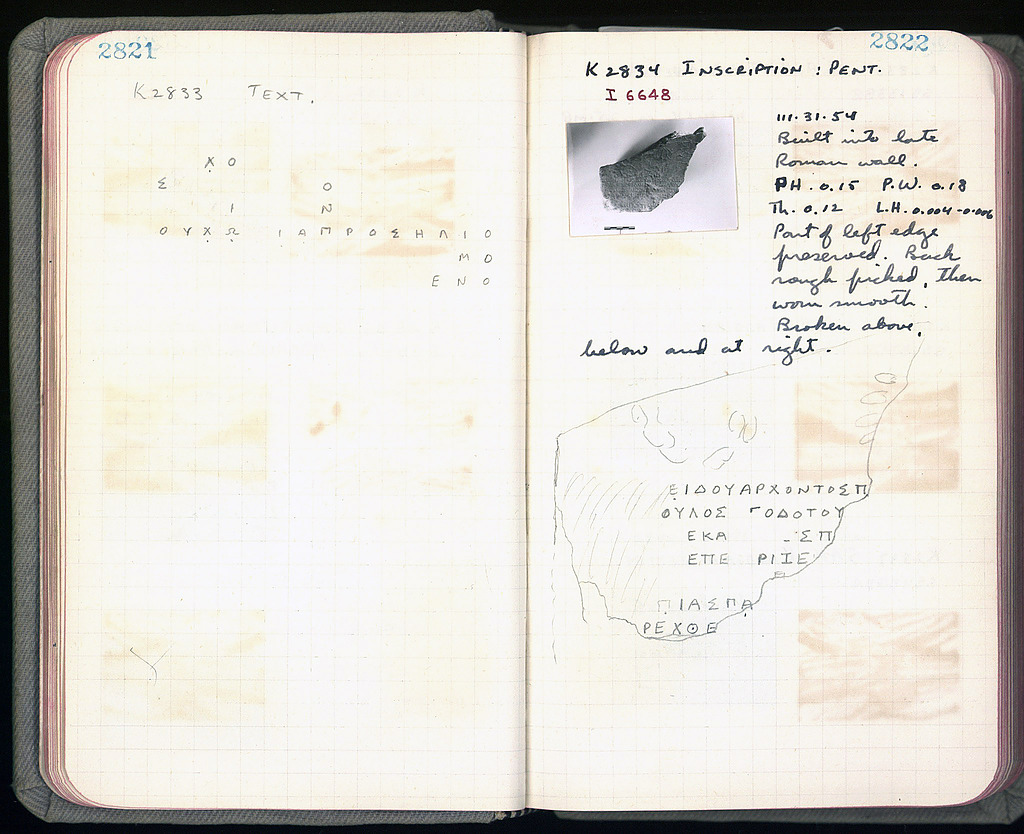 2821
K 2833 TEXT.
Χ Ο
Σ Ο
Ι Ν
Ο Υ Χ Ω Ι Α Π Ρ Ο Σ Η Λ Ι Ο
Μ Ο
Ε Ν Ο
2822
K 2834 INSCRIPTION : PENT.
I 6648
III·31·54
Built into late
Roman wall.
PH. 0.15 P.W. 0.18
Th. 0.12 L.H. 0.004-0.006
Part of left edge
preserved. Back
rough picked, then
worn smooth.
Broken above,
below and at right.
ΕΙΔΟΥΑΡΧΟΝΤΟΣΠ
ΟΥΛΟΣ ΓΟΔΟΤΟΥ
ΕΚΑ ΣΠ
ΕΠΕ ΡΙΞΕ
ΠΙΑΣΠΑ
ΡΕΧΘΕ